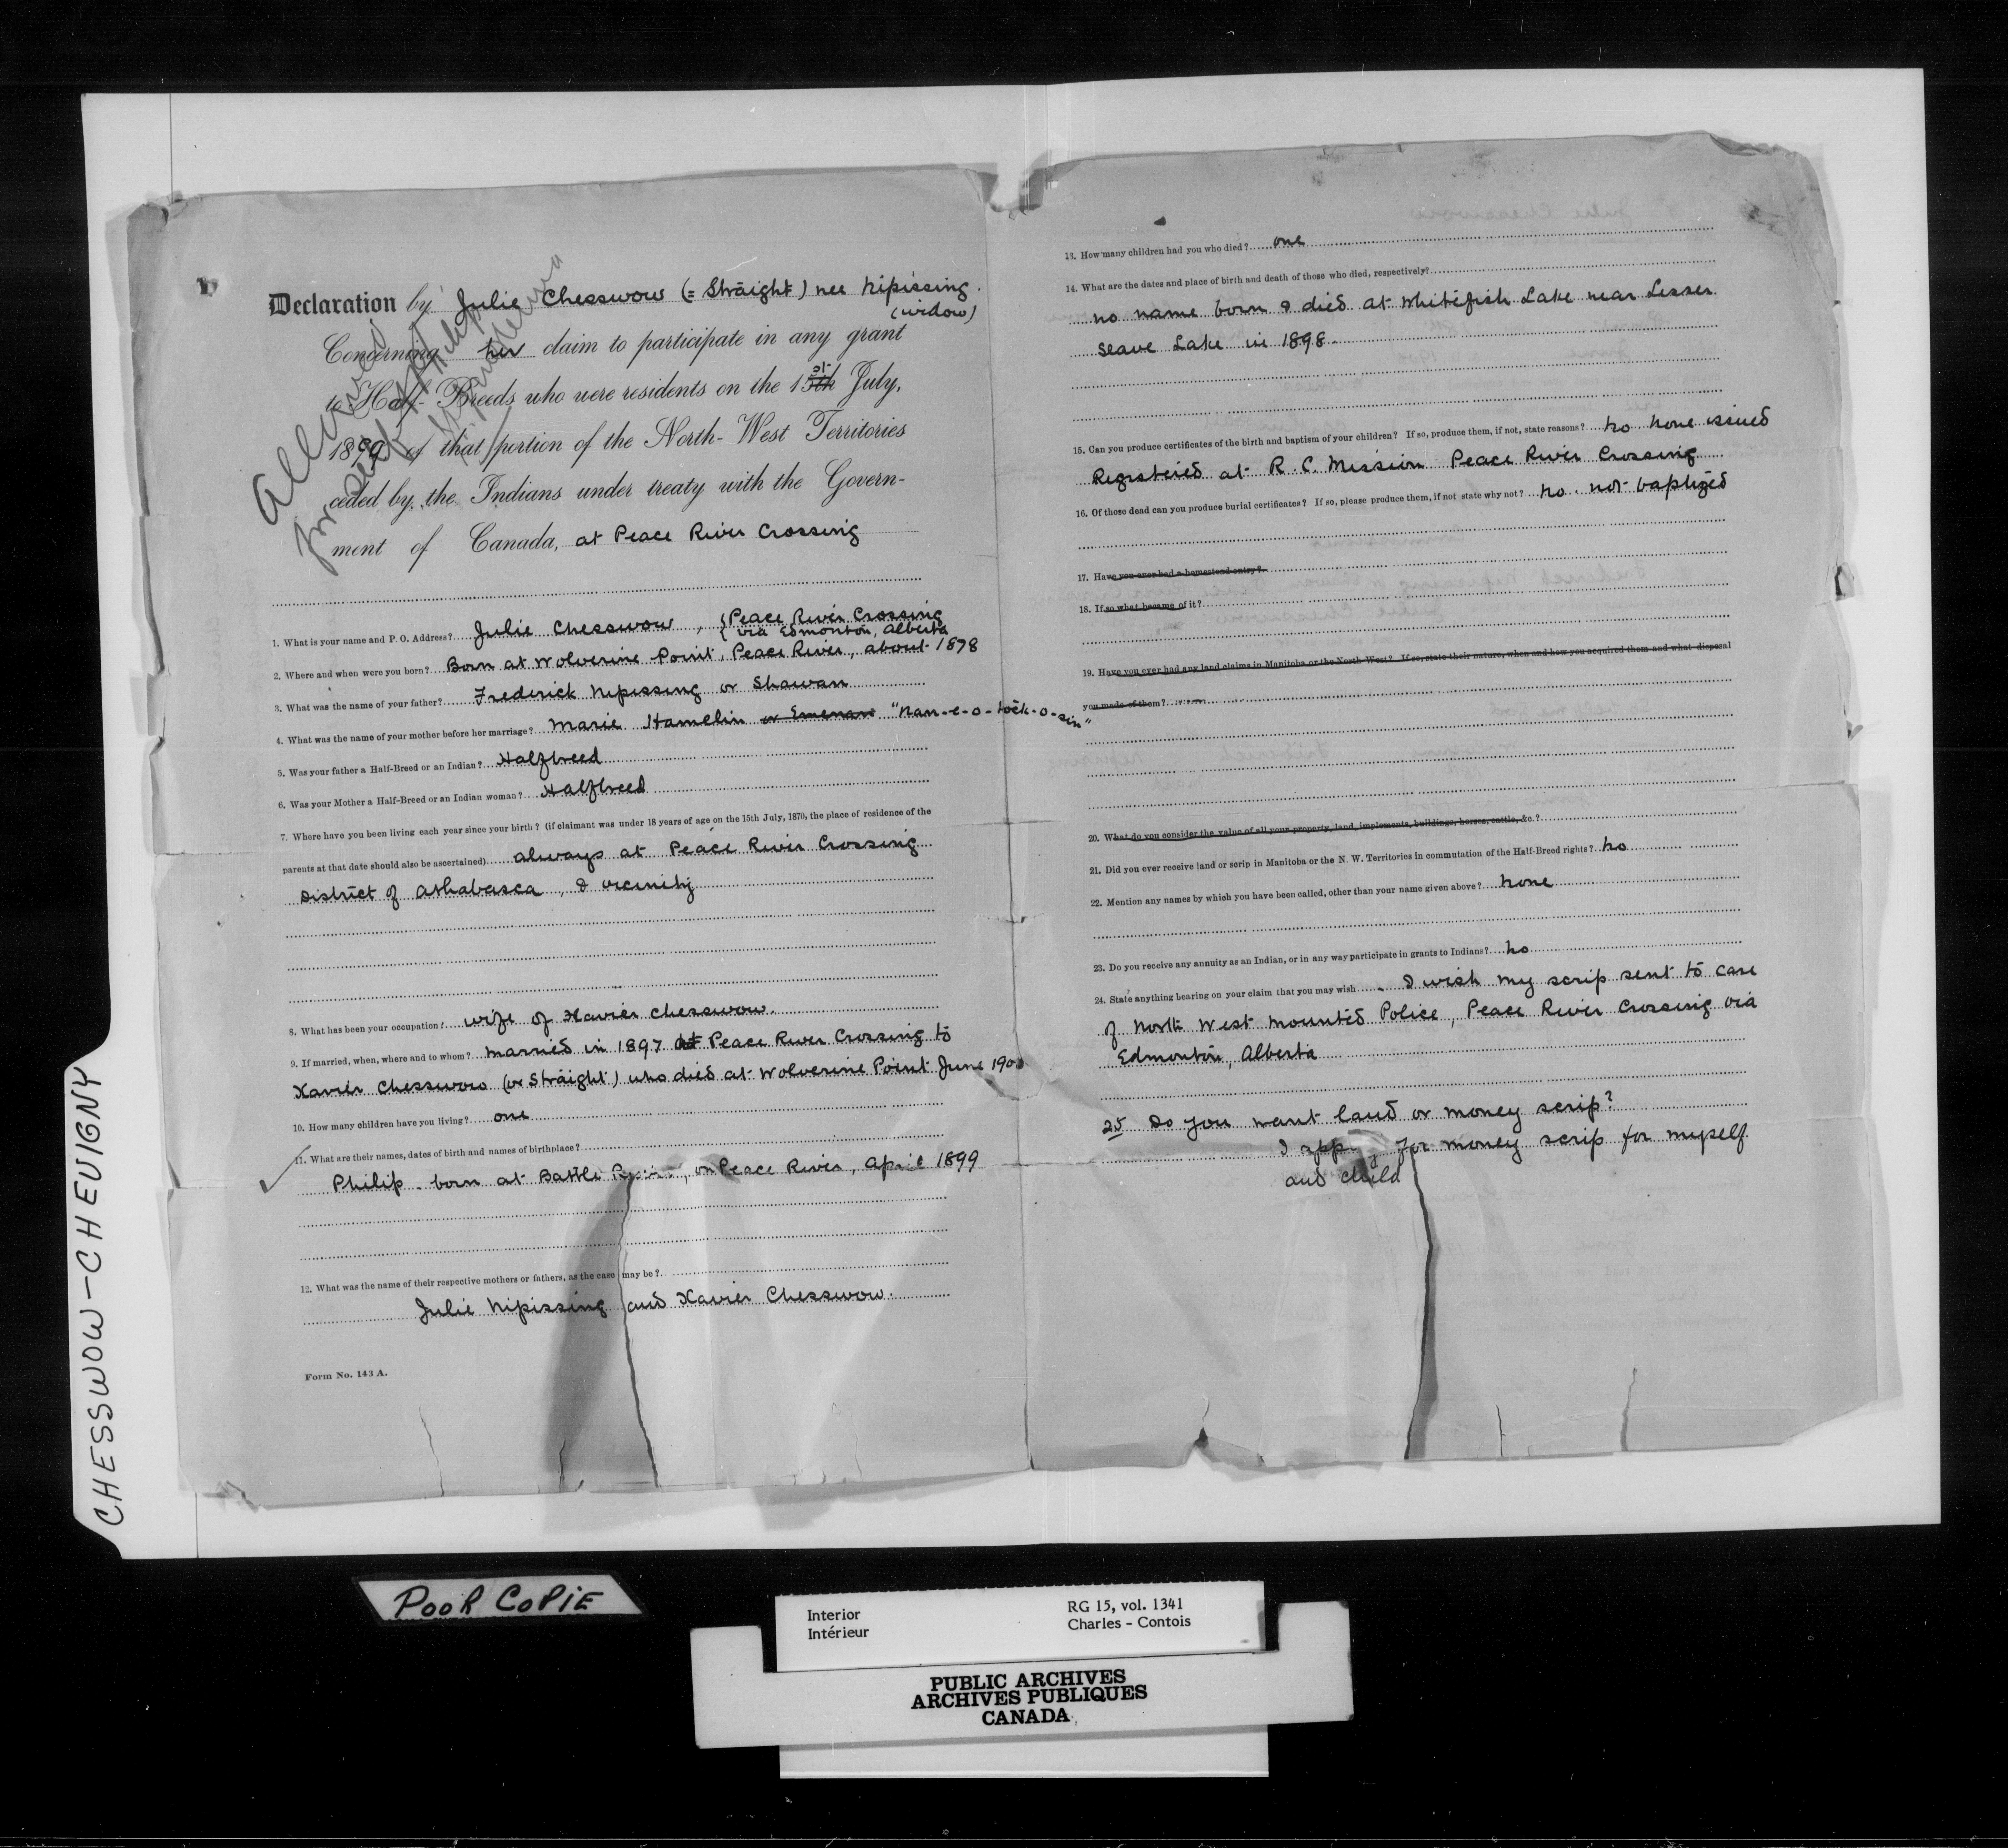 Declaration by Julie Chesswow (= Straight) nee Nipissing.
(widow)
Concerning her claim to participate in any grant
to Half-Breeds who were residents on the 15th July,
1899 of that portion of the North-West Territories
ceded by the Indians under treaty with the Govern-
ment of Canada, at Peace River Crossing
Allowed
for self
1. What is your name and P. O. Address? Julie Chesswow, { Peace River Crossing
{ via Edmonton, Alberta
2. Where and when were you born? Born at Wolverine Point, Peace River, about 1878
3. What was the name of your father? Frederick Nipissing or Shawan
4. What was the name of your mother before her marriage? Marie Hamelin or Emenan "Nan-e-o-tock-o-sin"
5. Was your father a Half-Breed or an Indian? Halfbreed
6. Was your Mother a Half-Breed or an Indian woman? Halfbreed
7. Where have you been living each year since your birth? (if claimant was under 18 years of age on the 15th July, 1870, the place of residence of the
parents at that date should also be ascertained) always at Peace River Crossing
District of Athabasca, & vicinity
8. What has been your occupation? wife of Xavier Chesswow.
9. If married, when, where and to whom? married in 1897 at Peace River Crossing to
Xavier Chesswow (or Straight) who died at Wolverine Point June 1900
10. How many children have you living? one
11. What are their names, dates of birth and names of birthplace?
Philip. born at Battle River, on Peace River, April 1899
12. What was the name of their respective mothers or fathers, as the case may be?
Julie Nipissing and Xavier Chesswow.
Form No. 143 A.
13. How many children had you who died? one
14. What are the dates and place of birth and death of those who died, respectively?
no name born & died at Whitefish Lake near Lesser
Slave Lake in 1898.
15. Can you produce certificates of the birth and baptism of your children? If so, produce them, if not, state reasons? No none issued
Registered at R. C. Mission Peace River Crossing
16. Of those dead can you produce burial certificates? If so, please produce them, if not state why not? No. not baptized
17. Have you ever had a homestead entry?
18. If so what became of it?
19. Have you ever had any land claims in Manitoba or the North-West? If so, state their nature, when and how you acquired them and what disposal
you made of them?
20. What do you consider the value of all your property, land, implements, buildings, horses, cattle, &c?
21. Did you ever receive land or scrip in Manitoba or the N. W. Territories in commutation of the Half-Breed rights? No
22. Mention any names by which you have been called, other than your name given above? None
23. Do you receive any annuity as an Indian, or in any way participate in grants to Indians? No
24. State anything bearing on your claim that you may wish. I wish my scrip sent to care
of North West Mounted Police, Peace River Crossing via
Edmonton, Alberta
25 Do you want land or money scrip?
I apply for money scrip for myself
and child
CHESSWOW-CHEVIGNY
POOR COPIE
Interior
Intérieur
RG 15, vol. 1341
Charles - Contois
PUBLIC ARCHIVES
ARCHIVES PUBLIQUES
CANADA